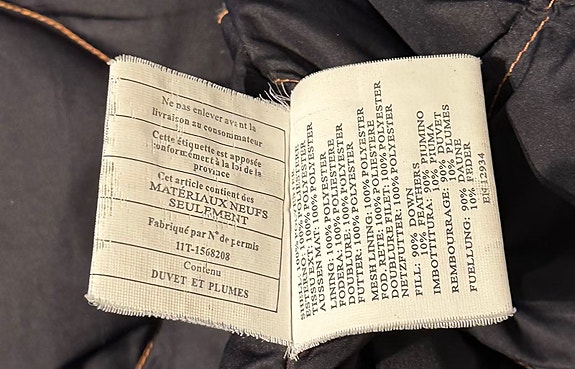 Ne pas enlever avant la
livraison au consommateur
Cette étiquette est apposée
conformément à la loi de la
province
Cet article contient des
MATÉRIAUX NEUFS
SEULEMENT
Fabriqué par N° de permis
11T-1568208
Contenu
DUVET ET PLUMES
ESTERNO: 100% POLYESTER
TISSU EXT: 100% POLYESTER
AUSSEN MAT: 100% POLYESTER
LINING: 100% POLYESTER
FODERA: 100% POLIESTERE
DOUBLURE: 100% POLYESTER
FUTTER: 100% POLYESTER
MESH LINING: 100% POLYESTER
FOD. RETE: 100% POLIESTERE
DOUBLURE FILET: 100% POLYESTER
NETZFUTTER: 100% POLYESTER
FILL: 90% DOWN
10% FEATHERS
IMBOTTITURA: 90% PIUMINO
10% PIUMA
REMBOURRAGE: 90% DUVET
10% PLUMES
FUELLUNG: 90% DAUNE
10% FEDER
EN 12934